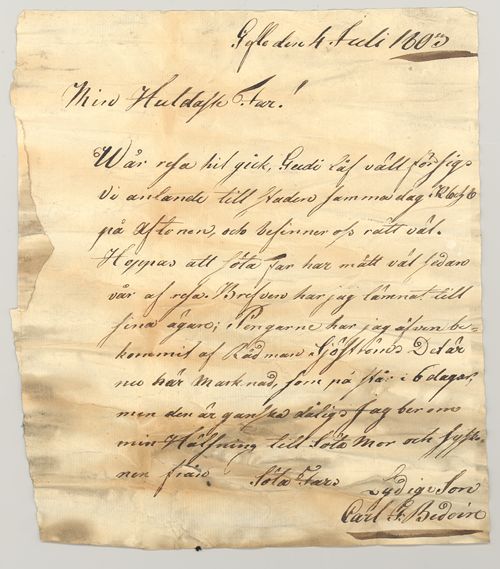 Gefle den 4 Juli 1803
Min Huldaste Far!
Wår resa hit gick, Gudi låf väll för sig.
Vi anlände till staden samma dag Kl 6
på Aftonen, och befinner oss rätt väl.
Hoppas att söta Far har mått väl sedan
vår af resa. Brefven har jag lämnat till
sina ägare; Pengarne har jag äfven be-
kommit af Rådman Sjöström. Det är
nu här Marknad, som på står i 6 dagar,
men den är ganska dålig. Jag ber om
min Hälsning till Söta Mor och Sysko-
nen från Söta Fars Lydige Son
Carl F. Bedoire